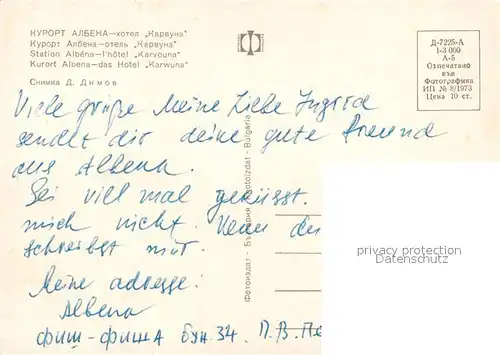 КУРОРТ АЛБЕНА—хотел „Карвуна"
Курорт Албена—отель „Карвуна"
Station Albéna—l'hôtel „Karvouna"
Kurort Albena—das Hotel „Karwuna"
Снимка Д. Димов
Д-7225-А
1-3 000
А-5
Отпечатано
във
Фотографика
ИП № 8/1973
Цена 10 ст.
Viele grüße Meine Liebe Ingrid
sendet dir deine gute freund
aus Albena.
Sei viel mal geküsst.
mich nicht. Wenn du
schreibst mir.
Meine adresse:
Albena
фиш-фиш А бун. 34. П. В.
Фотоиздат - България Photoizdat - Bulgaria
privacy protection
www.ansichtskartenversand.com